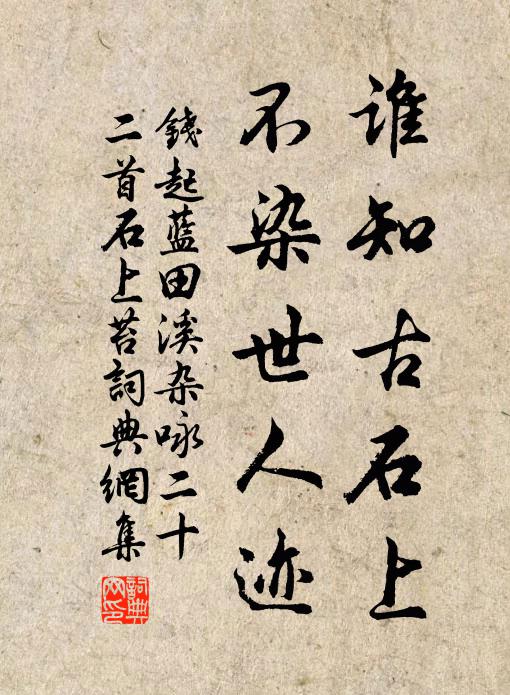 谁知古石上
不染世人迹
錢起蓝田溪杂咏二十
二首石上苔詞典網集
詞典網印